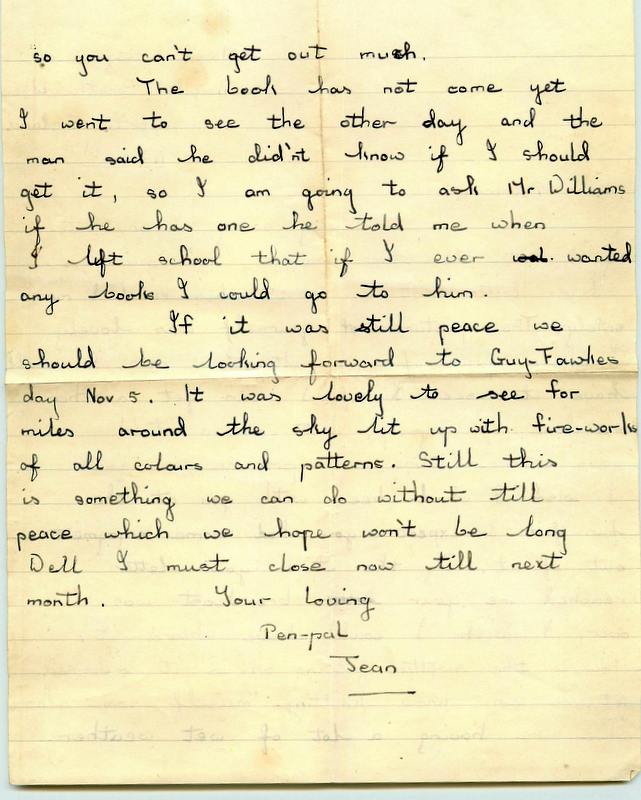 so you can't get out much.
The book has not come yet
I went to see the other day and the
man said he did'nt know if I should
get it, so I am going to ask Mr Williams
if he has one he told me when
I left school that if I ever wanted
any books I could go to him.
If it was still peace we
should be looking forward to Guy-Fawkes
day Nov 5. It was lovely to see for
miles around the sky lit up with fire-works
of all colours and patterns. Still this
is something we can do without till
peace which we hope won't be long
Dell I must close now till next
month. Your loving
Pen-pal
Jean